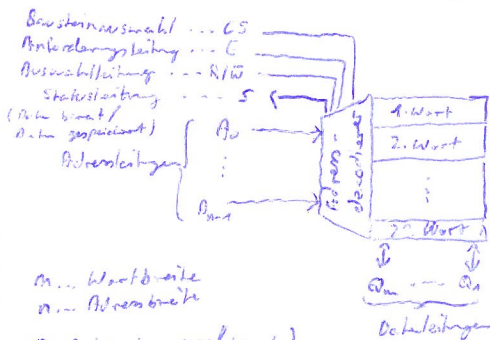 Bausteinauswahl ... CS
Anforderungsleitung ... C
Auswahlleitung ... R/W̅
Statusleitung ... S
(Daten bereit /
Daten gespeichert)
Adressleitungen
A₀
⋮
Aₙ₋₁
Adress-
decodierer
1. Wort
2. Wort
⋮
2ⁿ. Wort
Qₘ ... Q₁
Datenleitungen
m... Wortbreite
n... Adressbreite